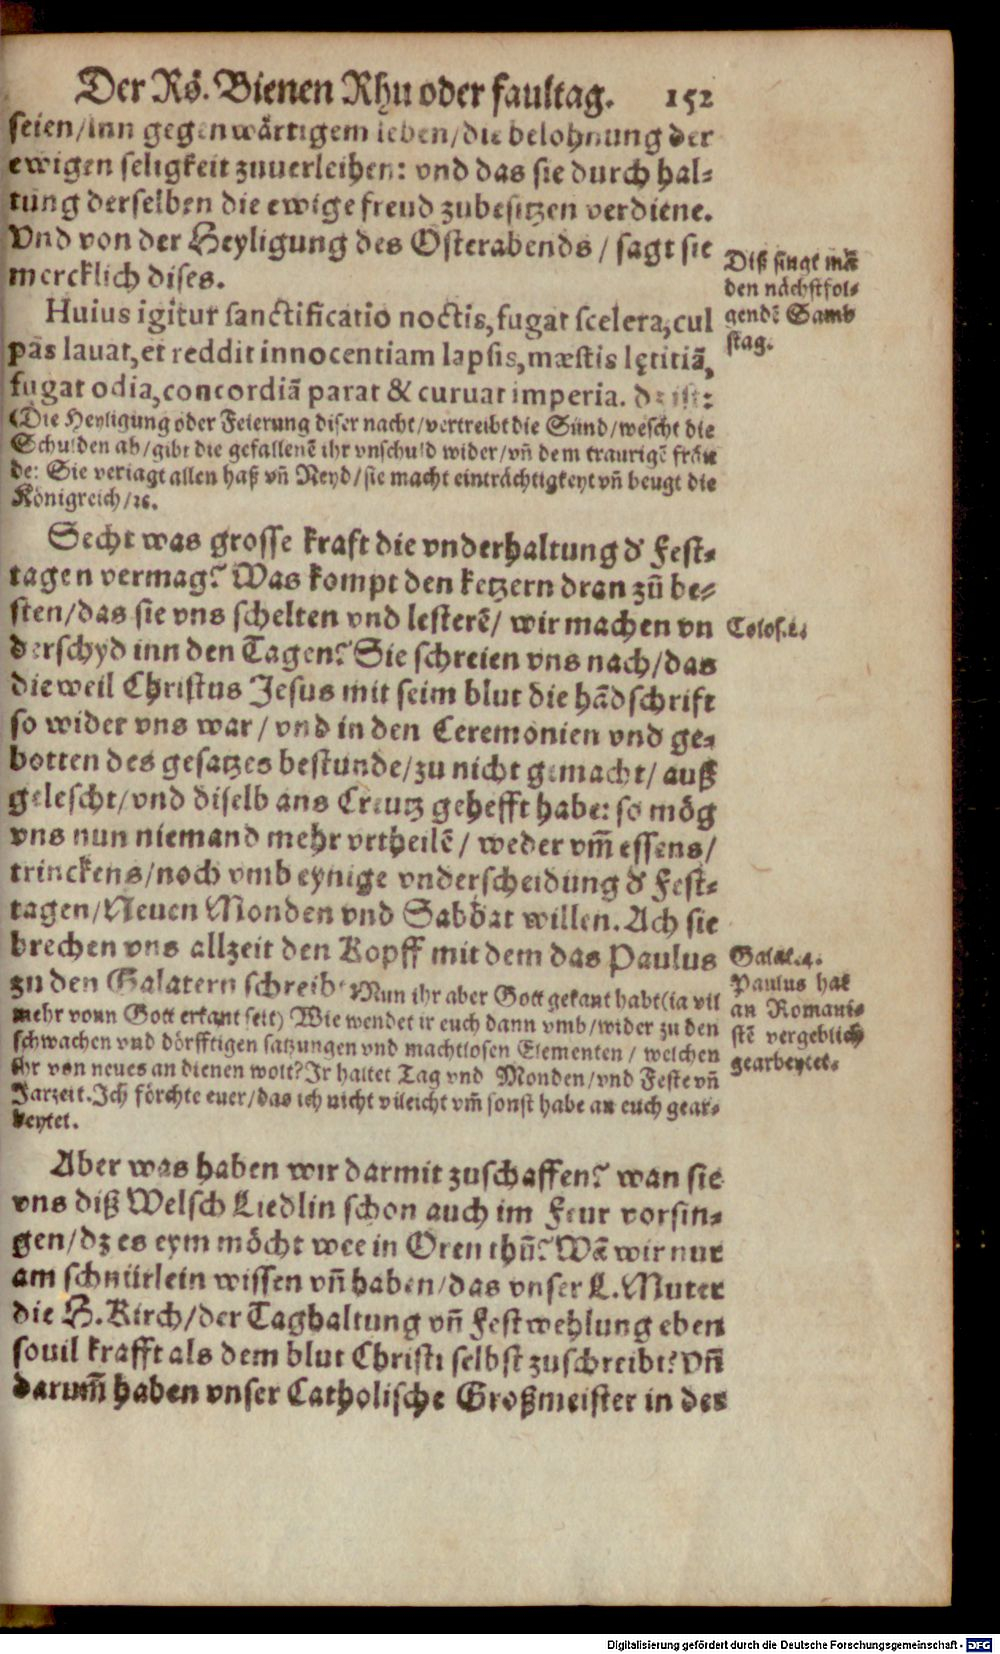 Der Rö. Bienen Rhu oder faultag. 152
seien/inn gegenwärtigem leben/die belohnung der
ewigen seligkeit zuuerleihen: vnd das sie durch hal⸗
tung derselben die ewige freud zubesitzen verdiene.
Vnd von der Heyligung des Osterabends / sagt sie
mercklich dises.
Diß singt mã
den nächstfol⸗
gendẽ Samb
stag.
Huius igitur sanctificatio noctis, fugat scelera, cul
pas lauat, et reddit innocentiam lapsis, mæstis lętitiã,
fugat odia, concordiã parat & curuat imperia. dz ist:
(Die Heyligung oder Feierung diser nacht/vertreibt die Sünd/wescht die
Schulden ab/gibt die gefallenẽ ihr vnschuld wider/vñ dem traurigẽ fräu
de: Sie veriagt allen haß vñ Neyd/sie macht einträchtigkeyt vñ beugt die
Königreich/ꝛc.
Secht was grosse kraft die vnderhaltung d' Fest⸗
tagen vermag? Was kompt den ketzern dran zũ be⸗
sten/das sie vns schelten vnd lesterẽ/ wir machen vn
derschyd inn den Tagen? Sie schreien vns nach/das
dieweil Christus Jesus mit seim blut die hãdschrift
so wider vns war / vnd in den Ceremonien vnd ge⸗
botten des gesatzes bestunde/zu nicht gemacht/ auß
gelescht/vnd diselb ans Creutz gehefft habe: so mög
vns nun niemand mehr vrtheilẽ / weder vm̃ essens/
trinckens/noch vmb eynige vnderscheidung d' Fest⸗
tagen/Neuen Monden vnd Sabbat willen. Ach sie
brechen vns allzeit den Kopff mit dem das Paulus
zu den Galatern schreib
Colos.2.
Galat.4.
Paulus hat
an Romani⸗
stẽ vergeblich
gearbeytet.
Nun ihr aber Gott gekant habt(ia vil
mehr vonn Gott erkant seit) Wie wendet ir euch dann vmb/wider zu den
schwachen vnd dörfftigen satzungen vnd machtlosen Elementen / welchen
ihr von neues an dienen wolt? Ir haltet Tag vnd Monden/vnd Feste vñ
Jarzeit. Ich förchte euer/das ich nicht vileicht vm̃ sonst habe an euch gear⸗
beytet.
Aber was haben wir darmit zuschaffen? wan sie
vns diß Welsch Liedlin schon auch im Feur vorsin⸗
gen/dz es eym möcht wee in Oren thũ? Wã wir nur
am schnürlein wissen vñ haben/das vnser L. Muter
die H. Kirch/der Taghaltung vñ Festwehlung eben
souil krafft als dem blut Christi selbst zuschreibt? Vñ
darum̃ haben vnser Catholische Großmeister in des
Digitalisierung gefördert durch die Deutsche Forschungsgemeinschaft - DFG